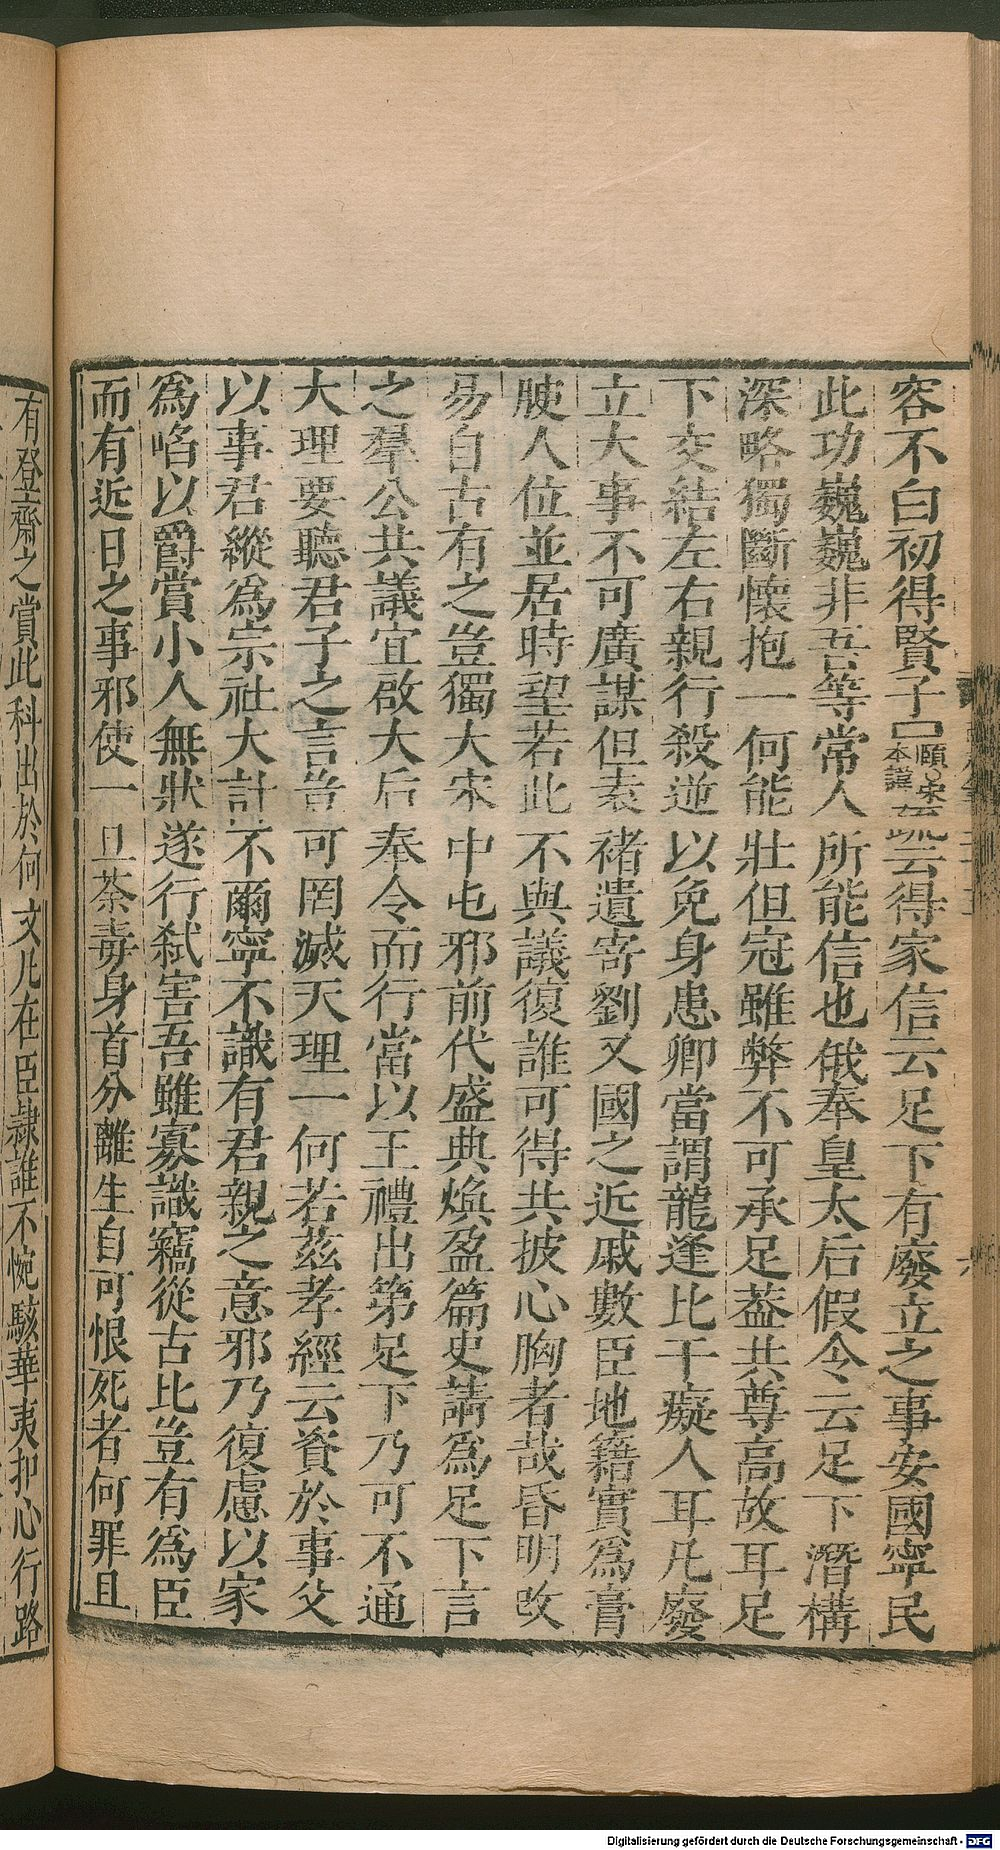 容不白初得賢子□頤宋本諱疏云得家信云足下有廢立之事安國寧民
此功巍巍非吾等常人所能信也俄奉皇太后假令云足下潛構
深略獨斷懷抱一何能壯但冠雖弊不可承足葢共尊高故耳足
下交結左右親行殺逆以免身患卿當謂龍逢比干癡人耳凡廢
立大事不可廣謀但袁褚遺寄劉又國之近戚數臣地籍實爲膏
腴人位並居時望若此不與議復誰可得共披心胸者哉昏明改
易白古有之豈獨大宋中屯邪前代盛典煥盈篇史請爲足下言
之羣公共議宜啟大后奉令而行當以王禮出第足下乃可不通
大理要聽君子之言豈可罔滅天理一何若茲孝經云資於事父
以事君縱爲宗社大計不爾寧不識有君親之意邪乃復慮以家
爲啗以爵賞小人無狀遂行弒害吾雖寡識竊從古比豈有爲臣
而有近日之事邪使一旦荼毒身首分離生自可恨死者何罪且
有登齋之賞此科出於何文凡在臣隸誰不惋駭華夷扣心行路
Digitalisierung gefördert durch die Deutsche Forschungsgemeinschaft - DFG